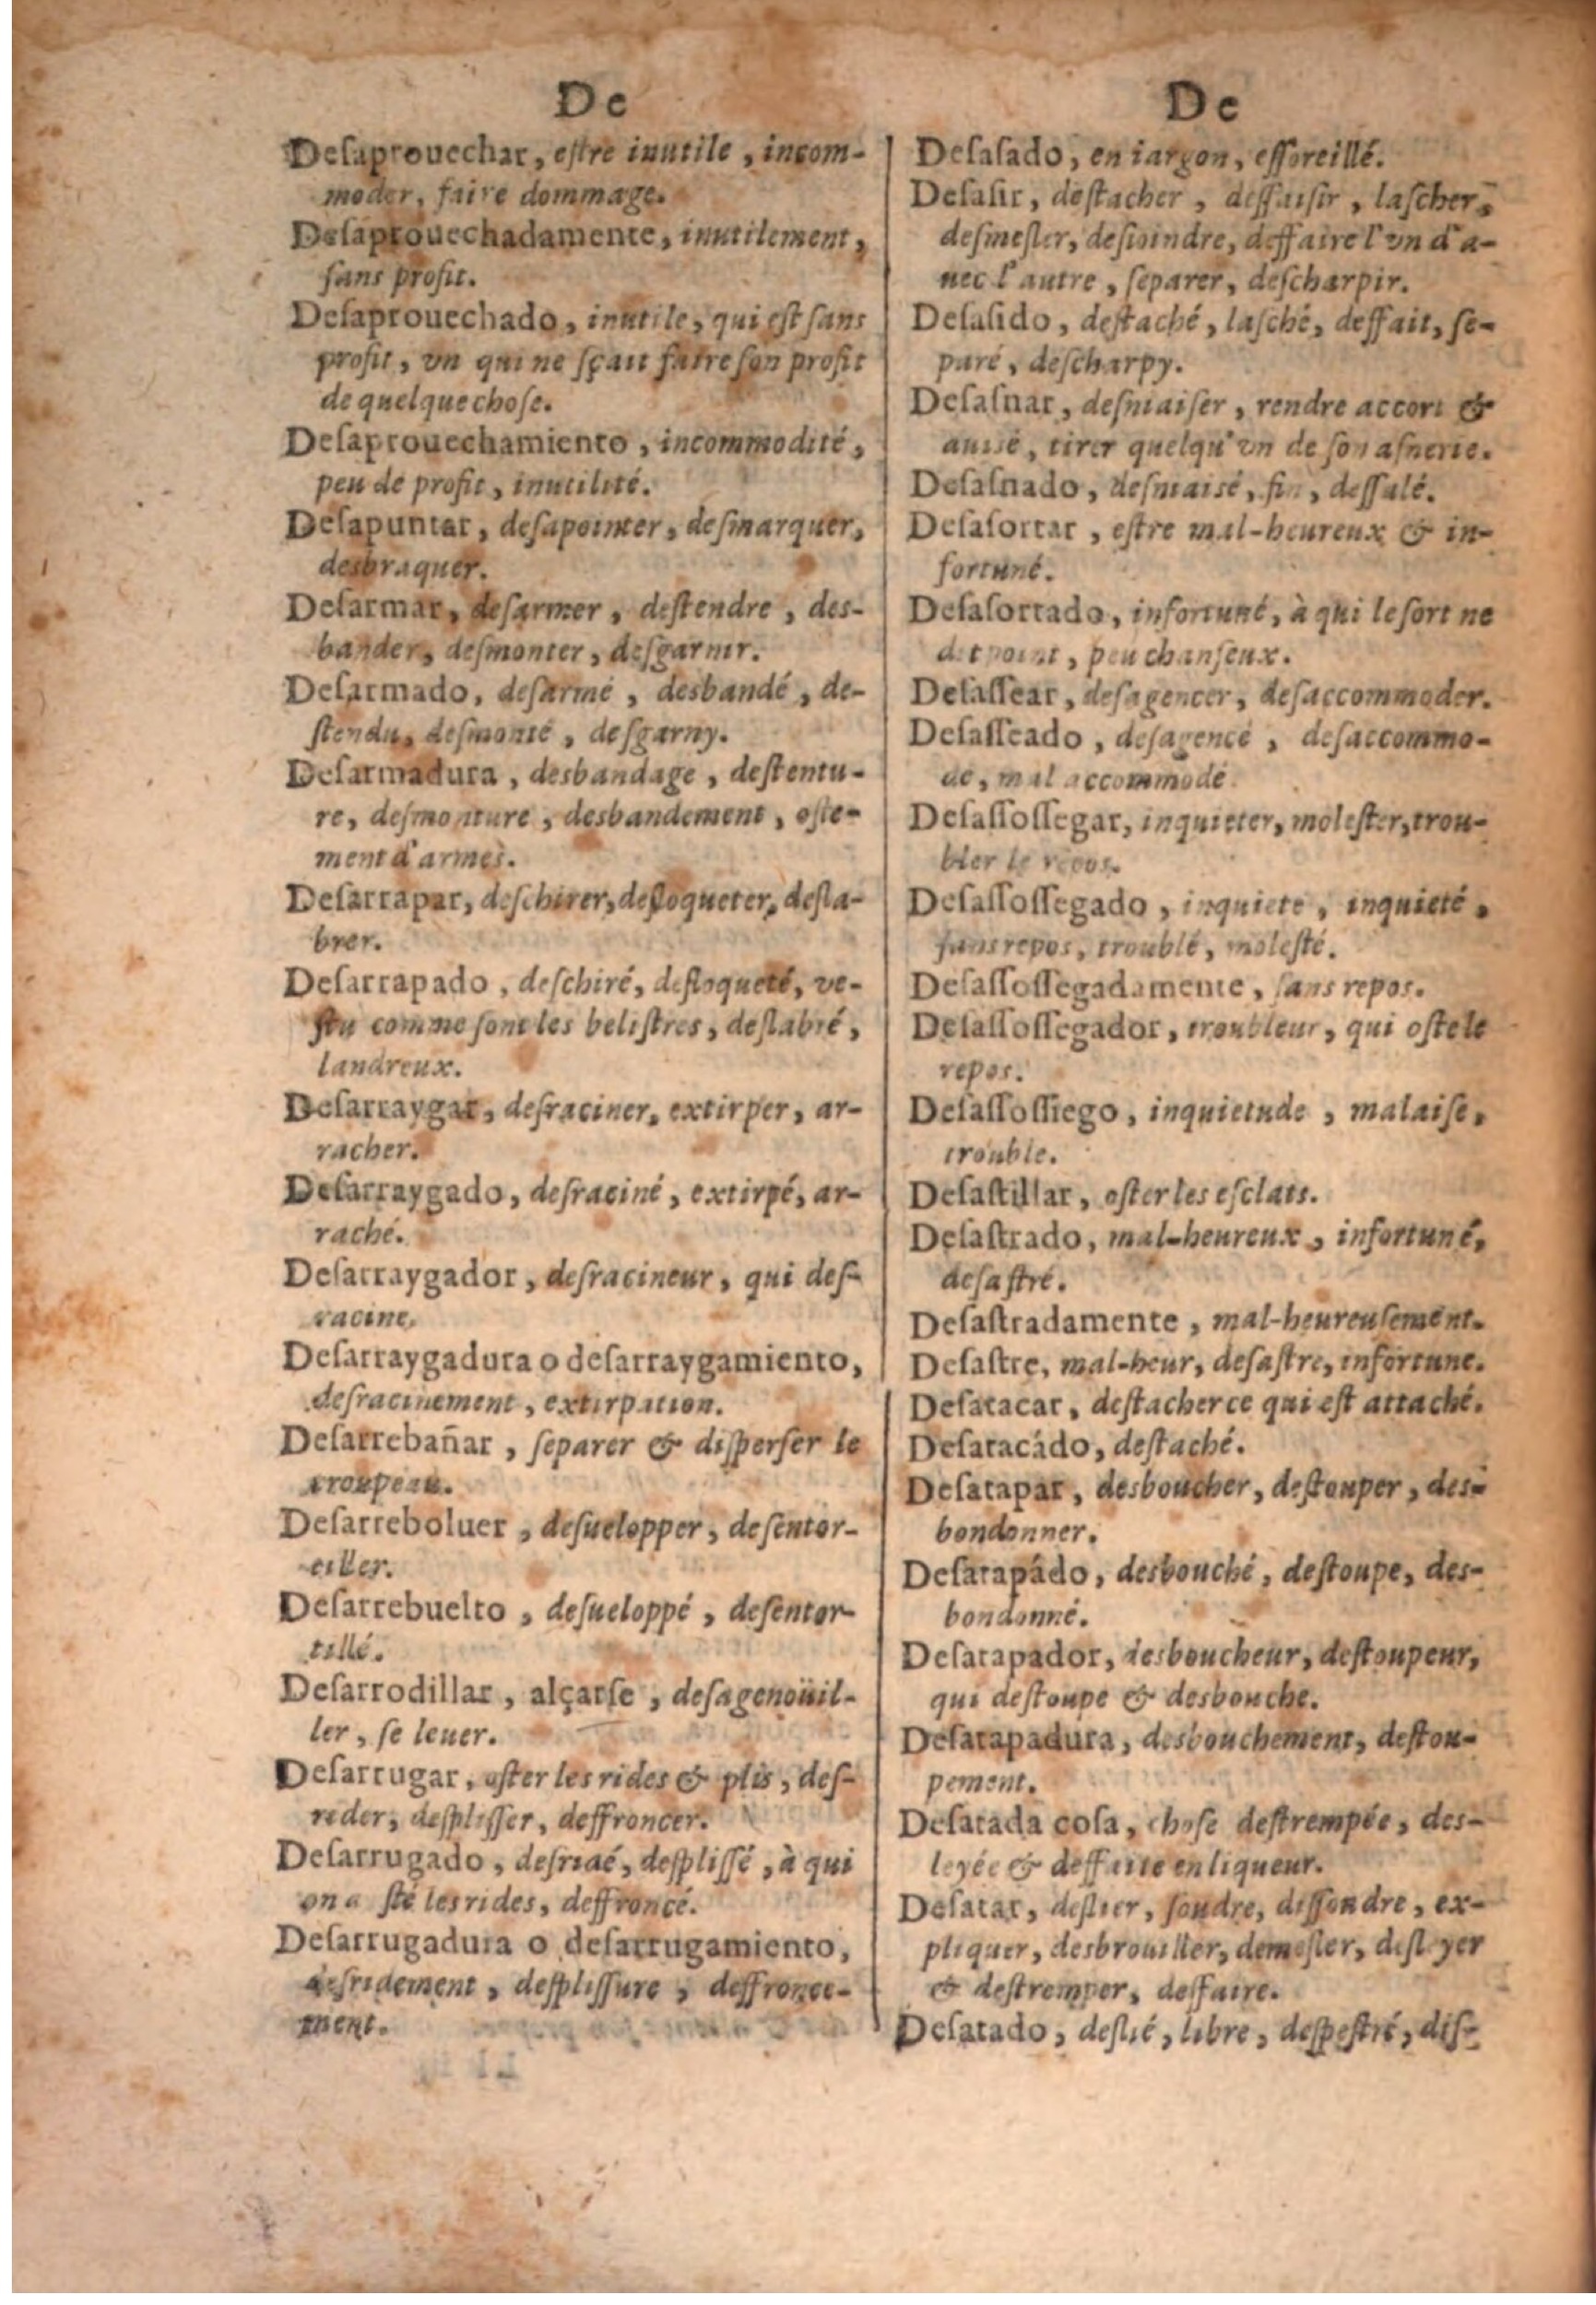 De
Deſaprouechar, eſtre inutile, incom-
moder, faire dommage.
Deſaprouechadamente, inutilement,
ſans profit.
Deſaprouechado, inutile, qui eſt ſans
profit, vn qui ne ſçait faire ſon profit
de quelque choſe.
Deſaprouechamiento, incommodité,
peu de profit, inutilité.
Deſapuntar, deſapointer, deſmarquer,
desbraquer.
Deſarmar, deſarmer, deſtendre, des-
bander, deſmonter, deſgarnir.
Deſarmado, deſarmé, desbandé, de-
ſtendu, deſmonté, deſgarny.
Deſarmadura, desbandage, deſtentu-
re, deſmonture, desbandement, oſte-
ment d'armes.
Deſarrapar, deſchirer, deſloqueter, deſla-
brer.
Deſarrapado, deſchiré, deſloqueté, ve-
ſtu comme ſont les beliſtres, deſlabré,
landreux.
Deſarraygar, deſraciner, extirper, ar-
racher.
Deſarraygado, deſraciné, extirpé, ar-
raché.
Deſarraygador, deſracineur, qui deſ-
racine.
Deſarraygadura o deſarraygamiento,
deſracinement, extirpation.
Deſarrebañar, ſeparer & diſperſer le
troupeau.
Deſarreboluer, deſuelopper, deſentor-
tiller.
Deſarrebuelto, deſueloppé, deſentor-
tillé.
Deſarrodillar, alçarſe, deſagenoüil-
ler, ſe leuer.
Deſarrugar, oſter les rides & plis, deſ-
rider, deſpliſſer, deffroncer.
Deſarrugado, deſridé, deſpliſſé, à qui
on a ſté les rides, deffroncé.
Deſarrugadura o deſarrugamiento,
deſridement, deſpliſſure, deffronce-
ment.
De
Deſaſado, en iargon, eſſoreillé.
Deſaſir, deſtacher, deſſaiſir, laſcher,
deſmeſler, deſioindre, deffaire l'vn d'a-
uec l'autre, ſeparer, deſcharpir.
Deſaſido, deſtaché, laſché, deffait, ſe-
paré, deſcharpy.
Deſaſnar, deſniaiſer, rendre accort &
auisé, tirer quelqu'vn de ſon aſnerie.
Deſaſnado, deſniaisé, fin, deſſalé.
Deſaſortar, eſtre mal-heureux & in-
fortuné.
Deſaſortado, infortuné, à qui le ſort ne
dit point, peu chanſeux.
Deſaſſear, deſagencer, deſaccommoder.
Deſaſſeado, deſagencé, deſaccommo-
dé, mal accommodé.
Deſaſſoſſegar, inquieter, moleſter, trou-
bler le repos.
Deſaſſoſſegado, inquiete, inquieté,
ſans repos, troublé, moleſté.
Deſaſſoſſegadamente, ſans repos.
Deſaſſoſſegador, troubleur, qui oſte le
repos.
Deſaſſoſſiego, inquietude, malaiſe,
trouble.
Deſaſtillar, oſter les eſclats.
Deſaſtrado, mal-heureux, infortuné,
deſaſtré.
Deſaſtradamente, mal-heureuſement.
Deſaſtre, mal-heur, deſaſtre, infortune.
Deſatacar, deſtacher ce qui eſt attaché.
Deſatacádo, deſtaché.
Deſatapar, desboucher, deſtouper, des-
bondonner.
Deſatapádo, desbouché, deſtoupe, des-
bondonné.
Deſatapador, desboucheur, deſtoupeur,
qui deſtoupe & desbouche.
Deſatapadura, desbouchement, deſtou-
pement.
Deſatada coſa, choſe deſtrempée, des-
leyée & deffaite en liqueur.
Deſatar, deſlier, ſoudre, diſſoudre, ex-
pliquer, desbrouiller, demeſler, deſleyer
& deſtremper, deffaire.
Deſatado, deſlié, libre, deſpeſtré, diſ-